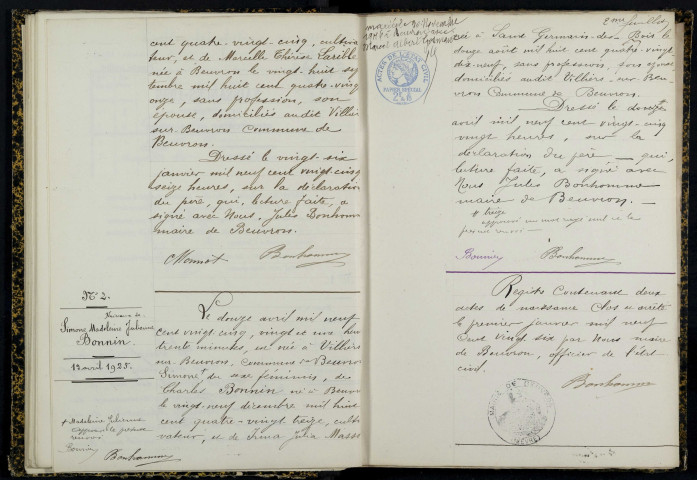 cent quatre-vingt-cinq, cultiva-
teur, et de Marcelle Thérèse Larible
née à Beuvron le vingt huit sep
tembre mil huit cent quatre-vingt
onze, sans profession, son
épouse, domiciliés audit Villiers
sur-Beuvron commune de
Beuvron.
Dressé le vingt-six
janvier mil neuf cent vingt-cinq
seize heures, sur la déclaration
du père, qui, lecture faite, a
signé avec Nous, Jules Bonhomme
maire de Beuvron.
Bonhomme
N° 2.
Naissance de
Simone Madeleine Julienne
Bonnin.
12 avril 1925.
+ Madeleine Julienne
Bonnin
Bonhomme
Le douze avril mil neuf
cent vingt-cinq, vingt et une heures
trente minutes, est née à Villiers
sur-Beuvron, commune de Beuvron
Simone + du sexe féminin, de
Charles Bonnin né à Beuvron
le vingt-neuf décembre mil huit
cent quatre-vingt treize, culti
vateur, et de Irma Julia Masse
2me feuillet
ACTES DE L'ÉTAT CIVIL
PAPIER SPÉCIAL
née à Saint Germain-des-Bois le
douze août mil huit cent quatre-vingt
dix-neuf, sans profession, son épouse
domiciliés audit Villiers-sur-Beu
vron Commune de Beuvron.
Dressé le
avril mil neuf cent vingt-cinq
vingt heures, sur la
déclaration du père — qui,
lecture faite, a signé avec
Nous Jules Bonhomme
maire de Beuvron. —
# treize
Bonnin
Bonhomme
Registre Contenant deux
actes de naissance Clos et arrêté
le premier janvier mil neuf
Cent vingt six par Nous maire
de Beuvron, officier de l'état
civil.
Bonhomme